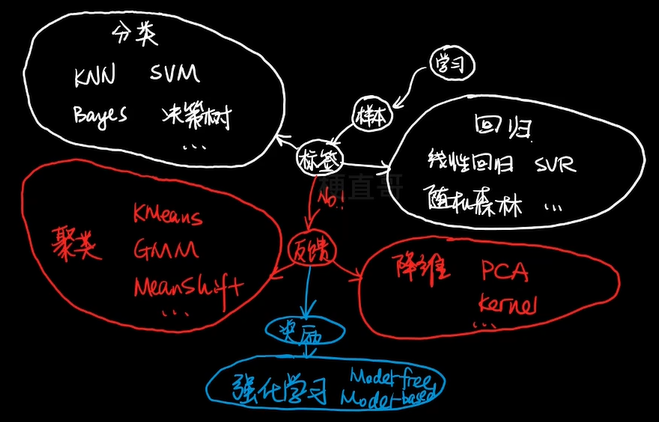 分类
KNN SVM
Bayes 决策树
...
学习
样本
标签
回归
线性回归 SVR
随机森林 ...
No!
聚类
KMeans
GMM
MeanShift
...
反馈
降维 PCA
Kernel
...
奖励
强化学习
Model-free
Model-based
硬直哥